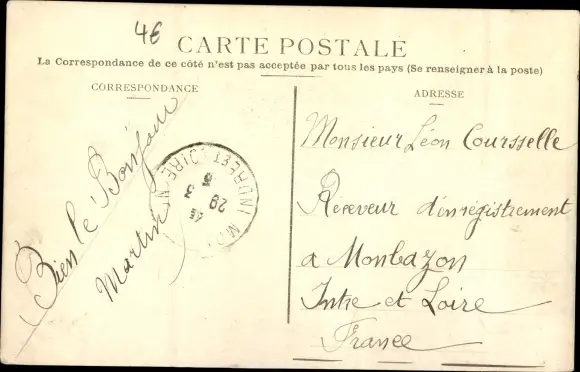 4€
CARTE POSTALE
La Correspondance de ce côté n'est pas acceptée par tous les pays (Se renseigner à la poste)
CORRESPONDANCE
Bien le Bonjour
Martin
ADRESSE
Monsieur Léon Coursselle
Receveur d'enregistrement
a Monbazon
Intre et Loire
France